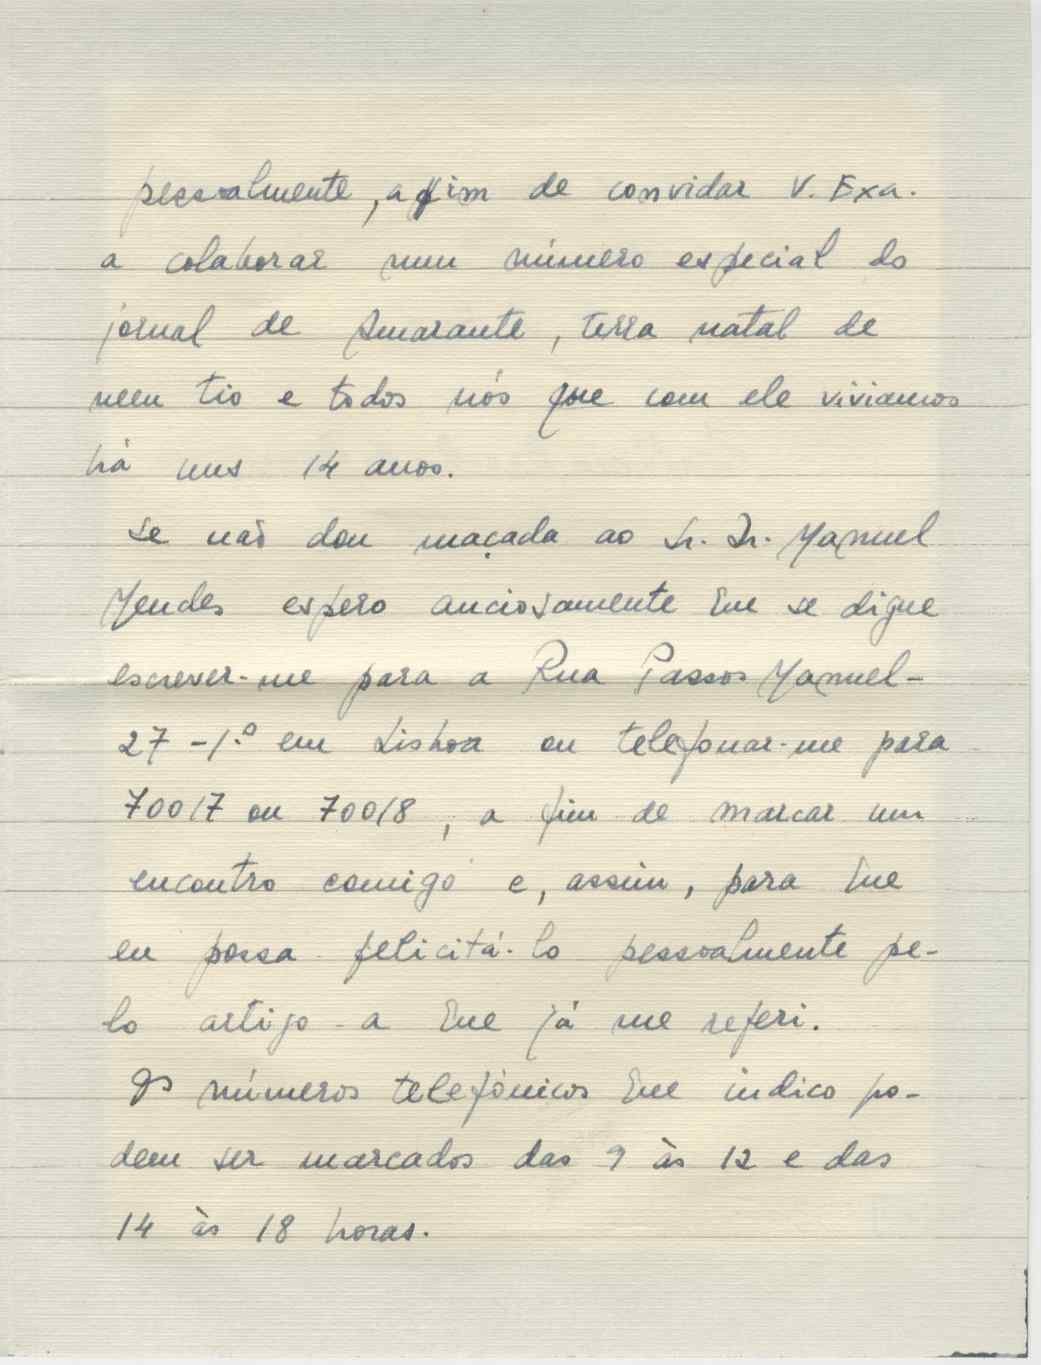 pessoalmente, a fim de convidar V. Exa.
a colaborar num número especial do
jornal de Amarante, terra natal de
meu tio e todos nós que com ele viviamos
há uns 14 anos.
Se não dou maçada ao Sr. Dr. Manuel
Mendes espero anciosamente que se digne
escrever-me para a Rua Passos Manuel-
27 -1.º em Lisboa ou telefonar-me para
70017 ou 70018, a fim de marcar um
encontro comigo e, assim, para que
eu possa felicitá-lo pessoalmente pe-
lo artigo a que já me referi.
Os números telefónicos que indico po-
dem ser marcados das 9 às 12 e das
14 às 18 horas.